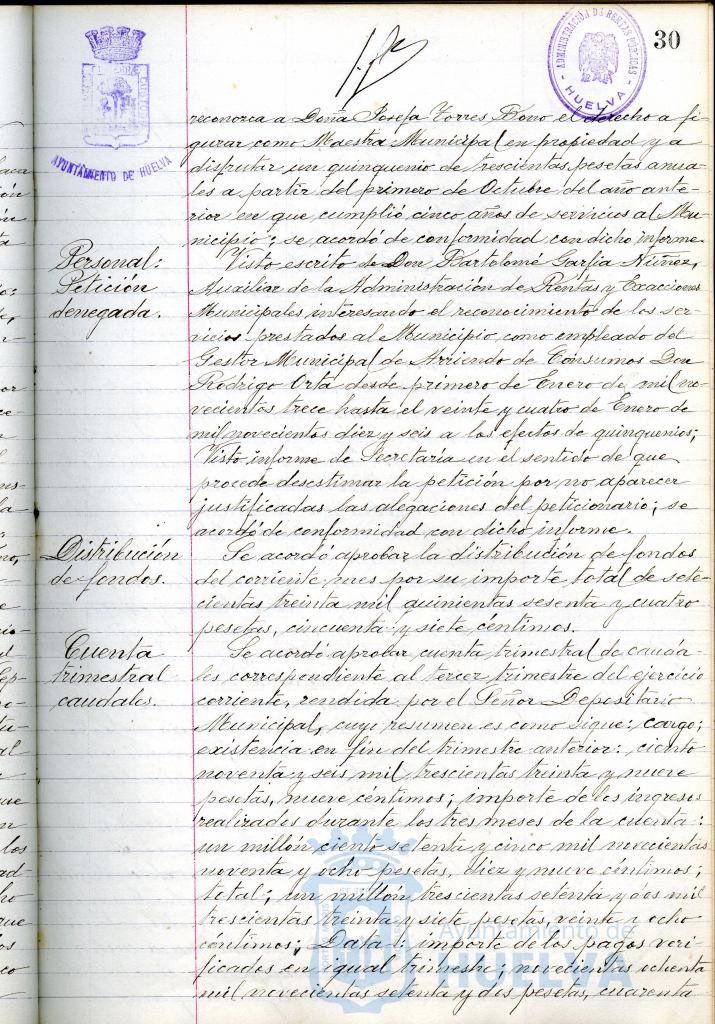 30
ADMINISTRACIÓN DE RENTAS PÚBLICAS
- HUELVA -
AYUNTAMIENTO DE HUELVA
reconozca a Doña Josefa Torres Bono el derecho a fi-
gurar como Maestra Municipal en propiedad y a
disfrutar un quinquenio de trescientas pesetas anua-
les a partir del primero de Octubre del año ante-
rior en que cumplió cinco años de servicios al Mu-
nicipio; se acordó de conformidad con dicho informe.
Personal:
Petición
denegada.
Visto escrito de Don Bartolomé Garfia Núñez,
Auxiliar de la Administración de Rentas y Exacciones
Municipales interesando el reconocimiento de los ser-
vicios prestados al Municipio como empleado del
Gestor Municipal de Arriendo de Consumos Don
Rodrigo Orta desde primero de Enero de mil no-
vecientos trece hasta el veinte y cuatro de Enero de
mil novecientos diez y seis a los efectos de quinquenios;
Visto informe de Secretaría en el sentido de que
procede desestimar la petición por no aparecer
justificadas las alegaciones del peticionario; se
acordó de conformidad con dicho informe.
Distribución
de fondos.
Se acordó aprobar la distribución de fondos
del corriente mes por su importe total de sete-
cientas treinta mil quinientas sesenta y cuatro
pesetas, cincuenta y siete céntimos.
Cuenta
trimestral
caudales.
Se acordó aprobar cuenta trimestral de cauda-
les correspondiente al tercer trimestre del ejercicio
corriente, rendida por el Señor Depositario
Municipal, cuyo resumen es como sigue: cargo;
existencia en fin del trimestre anterior: ciento
noventa y seis mil trescientas treinta y nueve
pesetas, nueve céntimos; importe de los ingresos
realizados durante los tres meses de la cuenta:
un millón ciento setenta y cinco mil novecientas
noventa y ocho pesetas, diez y nueve céntimos;
total; un millón, trescientas setenta y dos mil
trescientas treinta y siete pesetas, veinte y ocho
céntimos; Data: importe de los pagos veri-
ficados en igual trimestre; novecientas ochenta
mil novecientas setenta y dos pesetas, cuarenta
Ayuntamiento de
HUELVA